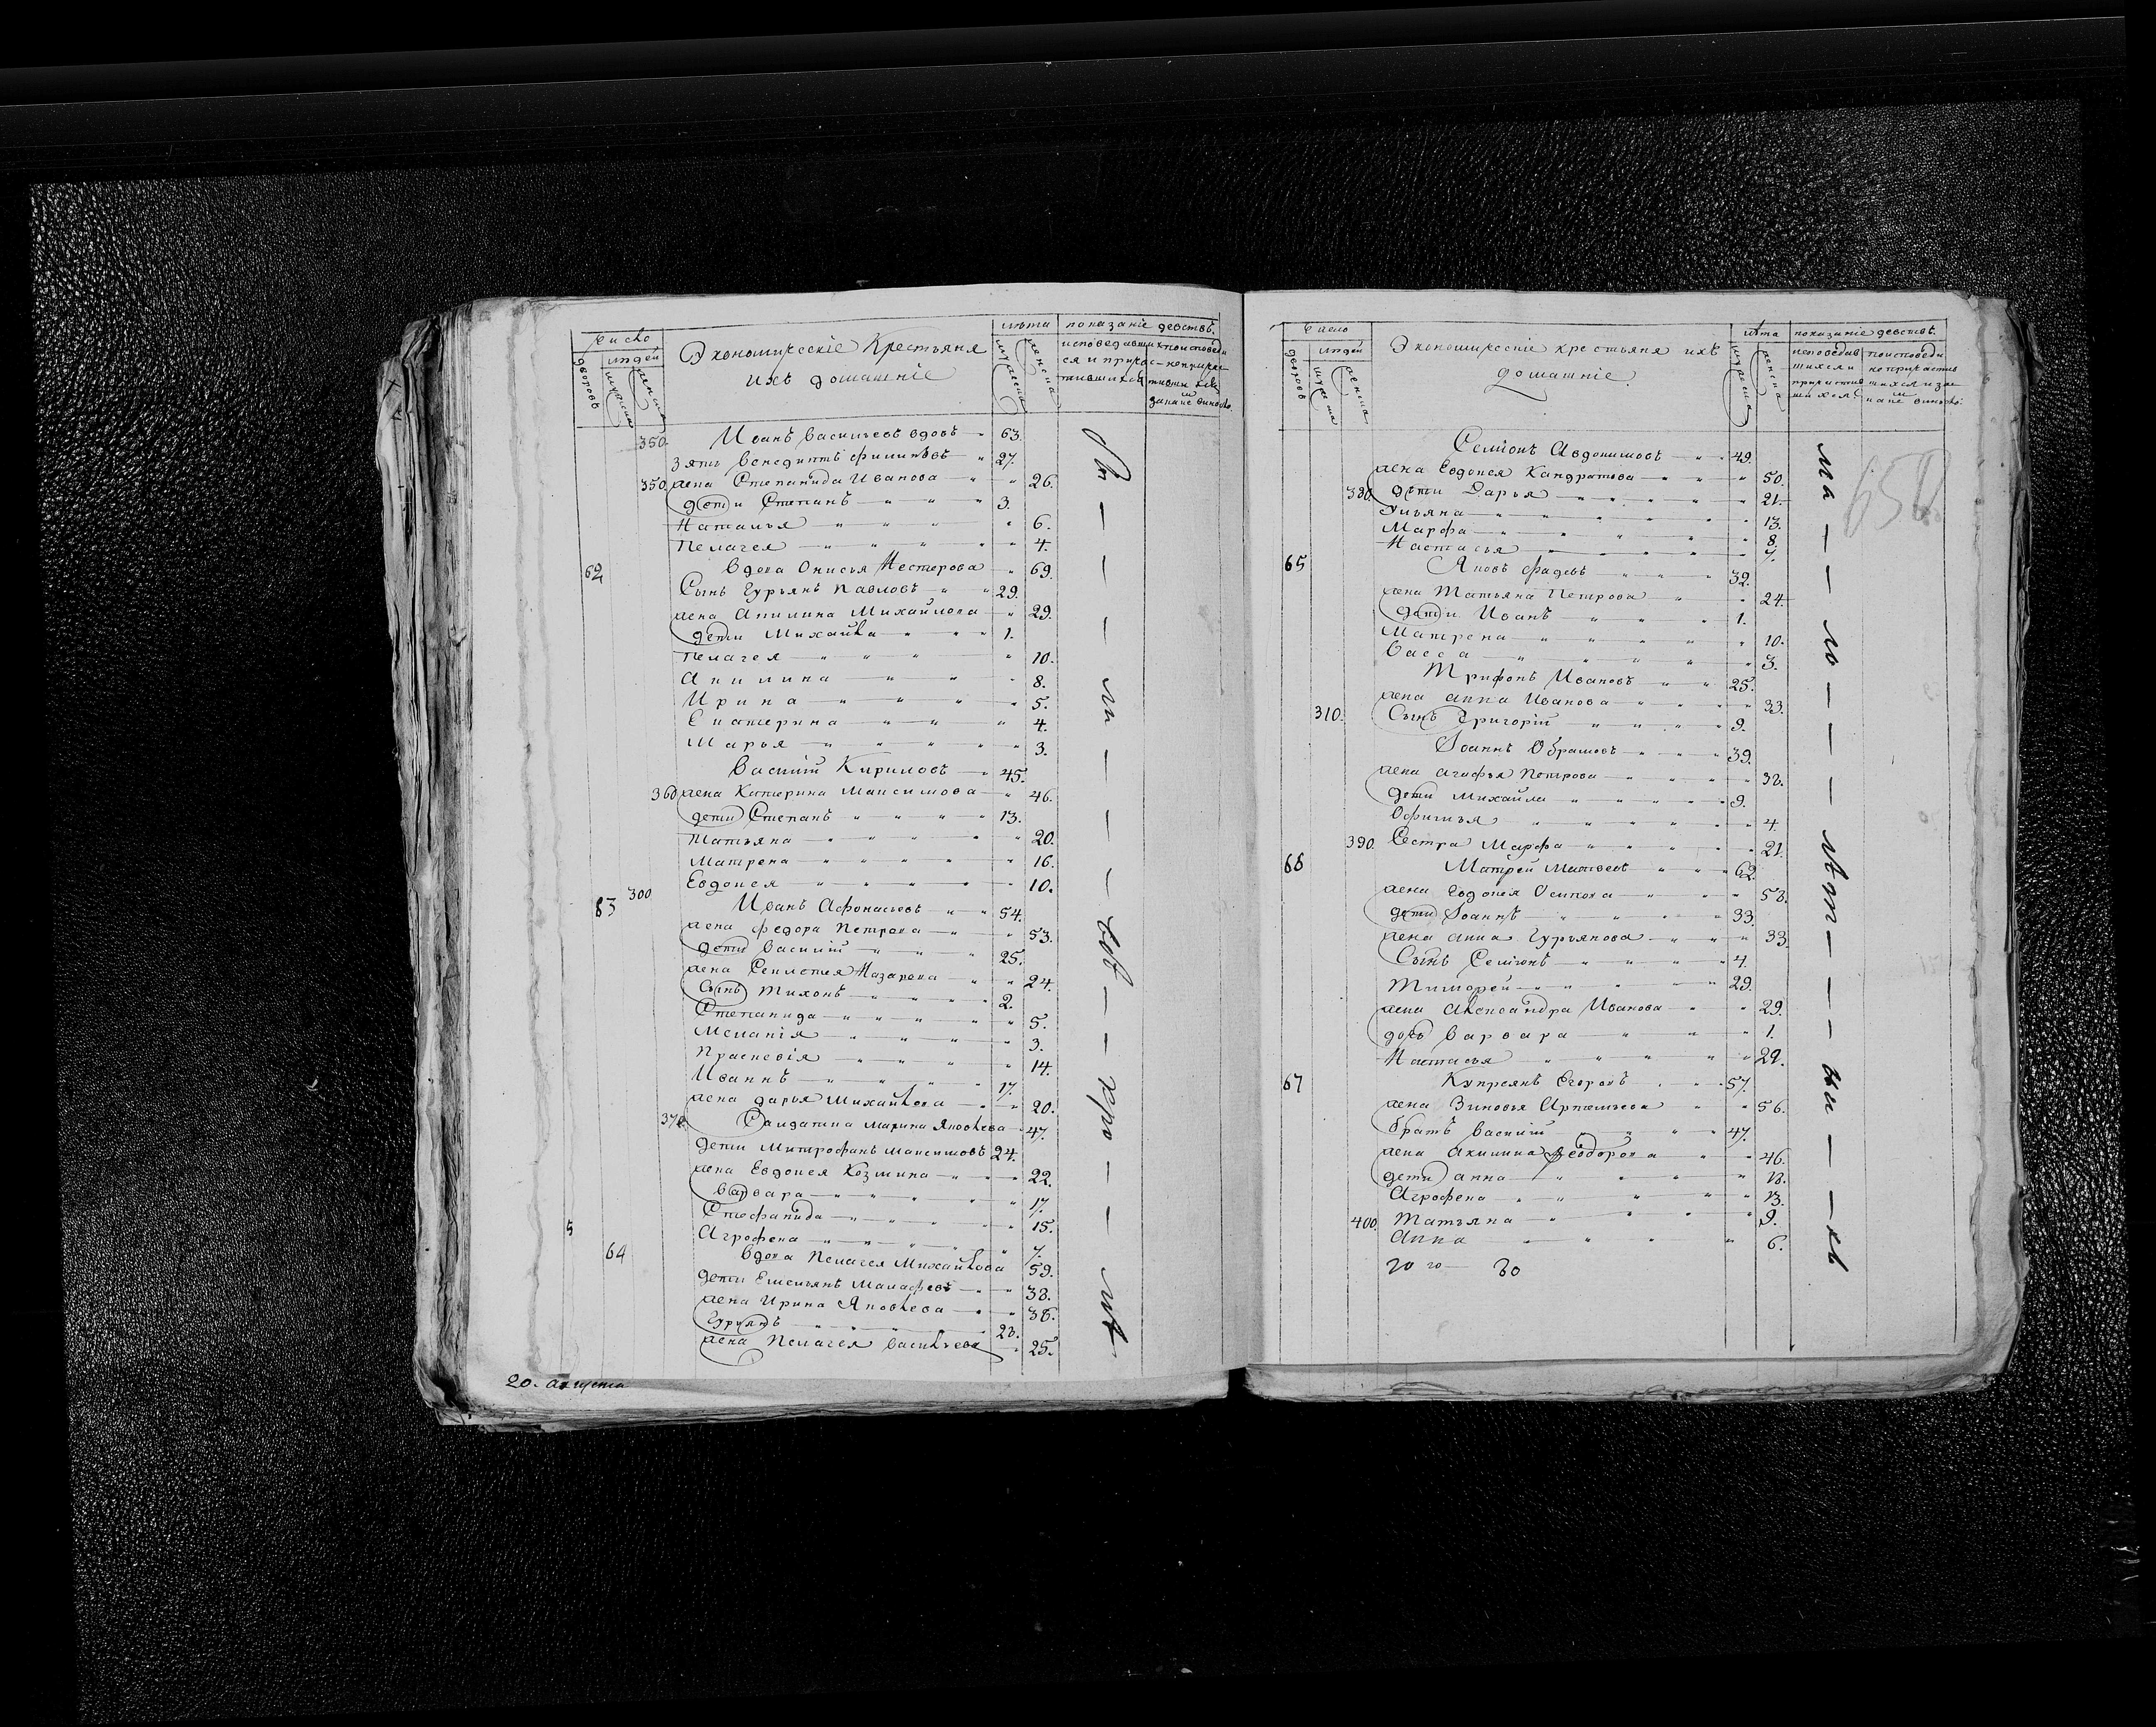 Число
людей
дворовъ
мужеска
женска
Экономическіе Крестьяня
ихъ домашніе
лѣта
мужеска
женска
показаніе девствъ.
350. Иванъ Васильевъ вдовъ 63.
зять Венедиктъ Филиповъ 27.
350. жена Степанида Иванова 26.
дети Степанъ 3.
Наталья 6.
Пелагея 4.
62 Вдова Онисья Нестерова 69.
Сынъ Гурьянъ Павловъ 29.
жена Акилина Михайлова 29.
дети Михайла 1.
Пелагея 10.
Акилина 8.
Ирина 5.
Екатерина 4.
Марья 3.
Василій Кириловъ 45.
360 жена Катерина Максимова 46.
дети Степанъ 13.
Татьяна 20.
Матрена 16.
Евдокея 10.
63 300 Иванъ Афонасьевъ 54.
жена Федора Петрова 53.
дети Василій 25.
жена Назарова 24.
Сынъ Тихонъ 2.
Степанида 5.
Меланія 3.
Праскевія 14.
Иваннъ 17.
жена Дарья Михайлова 20.
370. Салдатка Марина Яковлева 47.
дети Митрофанъ Максимовъ 24.
жена Евдокея Козмина 22.
Варвара 17.
Стефанида 15.
Агрофена 7.
64 Вдова Пелагея Михайлова 59.
дети Емельянъ Малафеевъ 38.
жена Ирина Яковлева 38.
Гурьянъ 23.
жена Пелагея Васильева 25.
20. Августа
Число
людей
дворовъ
мужеска
женска
Экономическіе крестьяня ихъ
домашніе.
лѣта
мужеска
женска
показаніе девствъ.
Семіонъ Авдокимовъ 49.
жена Евдокея Кандратова 50.
380. дѣти Дарья 21.
Ульяна 13.
Марфа 8.
Настасья 7.
65 Яковъ Фадеевъ 32.
жена Татьяна Петрова 24.
дети Иванъ 1.
Матрена 10.
Васса 3.
Трифонъ Ивановъ 25.
жена Анна Иванова 33.
310. Сынъ Григорій 9.
Іоаннъ Обрамовъ 39.
жена Агафья Петрова 38.
дети Михайла 9.
Офимья 4.
390. Сестра Марфа 21.
66 Матфей Матвеевъ 62.
жена Евдокея Осипова 58.
дети Іоаннъ 33.
жена Анна Гурьянова 33.
Сынъ Семіонъ 4.
Тимофей 29.
жена Александра Иванова 29.
дочь Варвара 1.
Настасья 22.
67 Купреянъ Егоровъ 57.
жена Зиновья Артемьева 56.
братъ Василій 47.
жена Акилина Феодорова 46.
дети Анна 18.
Агрофена 13.
400. Татьяна 9.
Анна 6.